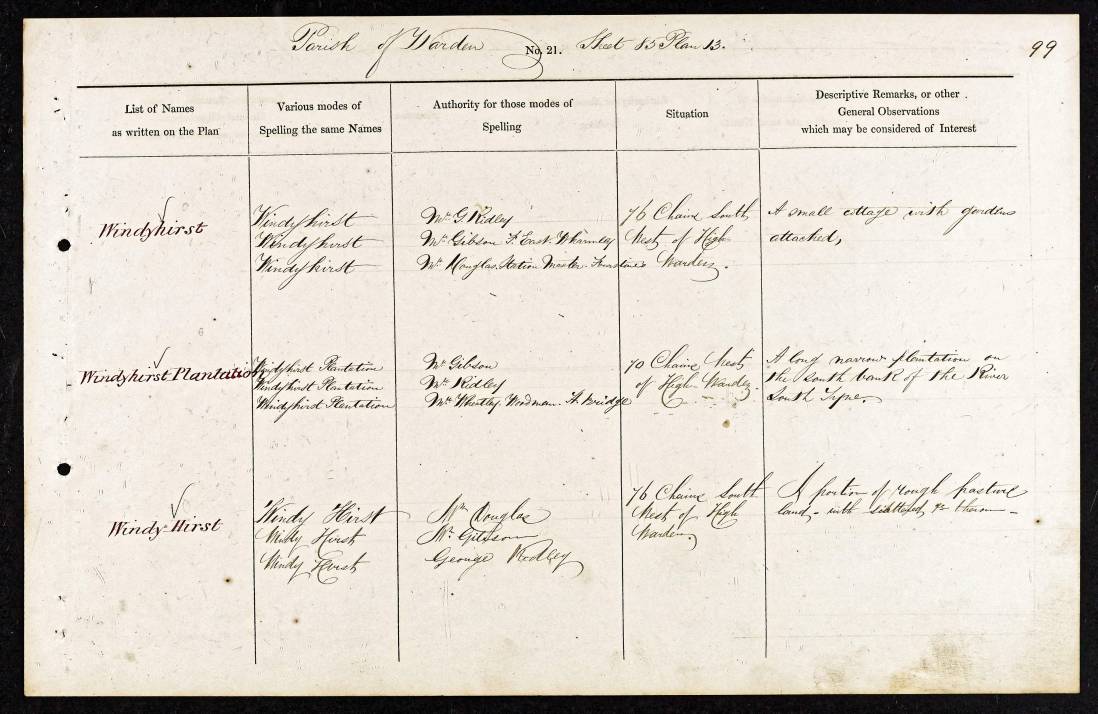 Parish of Warden No. 21. Sheet 85 Plan 13. 99
List of Names
as written on the Plan
Various modes of
Spelling the same Names
Authority for those modes of
Spelling
Situation
Descriptive Remarks, or other
General Observations
which may be considered of Interest
Windyhirst
Windyhirst
Windyhirst
Windyhirst
Mr. G Ridley
Mr. Gibson F. East Wharmley
Mr. Douglas Station Master
76 Chains South
West of High
Warden.
A small cottage with gardens
attached,
Windyhirst Plantation
Windyhirst Plantation
Windyhirst Plantation
Windyhirst Plantation
Mr. Gibson
Mr. Ridley
Mr. Woodman H. Bridge
70 Chains West
of High Warden.
A long narrow plantation on
the south bank of the River
South Tyne.
Windy Hirst
Windy Hirst
Windy Hirst
Windy Hirst
Mr. Douglas
Mr. Gibson
George Ridley
76 Chains South
West of High
Warden,
A portion of rough pasture
land with thereon